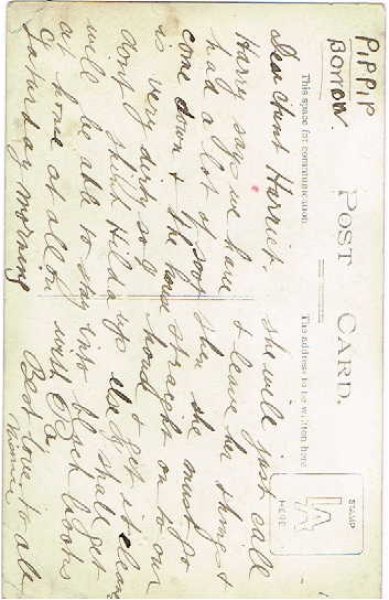 PIPPIP
POST CARD.
This space for communication.
The address to be written here
STAMP
HERE
Dear Aunt Harriet,
Harry says we have
had a lot of soot
come down & the house
is very dirty so I
don't Hilda
will be able to stay
at home at all on
Saturday morning
she will just call
& leave her things &
then she must go
straight on to our
& get it clean
up else I shall get
into black books
with Pa
Best love to all
Minnie